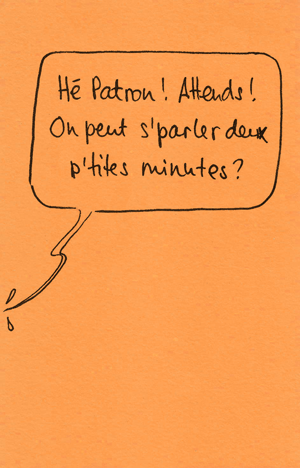 Hé Patron! Attends!
On peut s'parler deux
p'tites minutes?